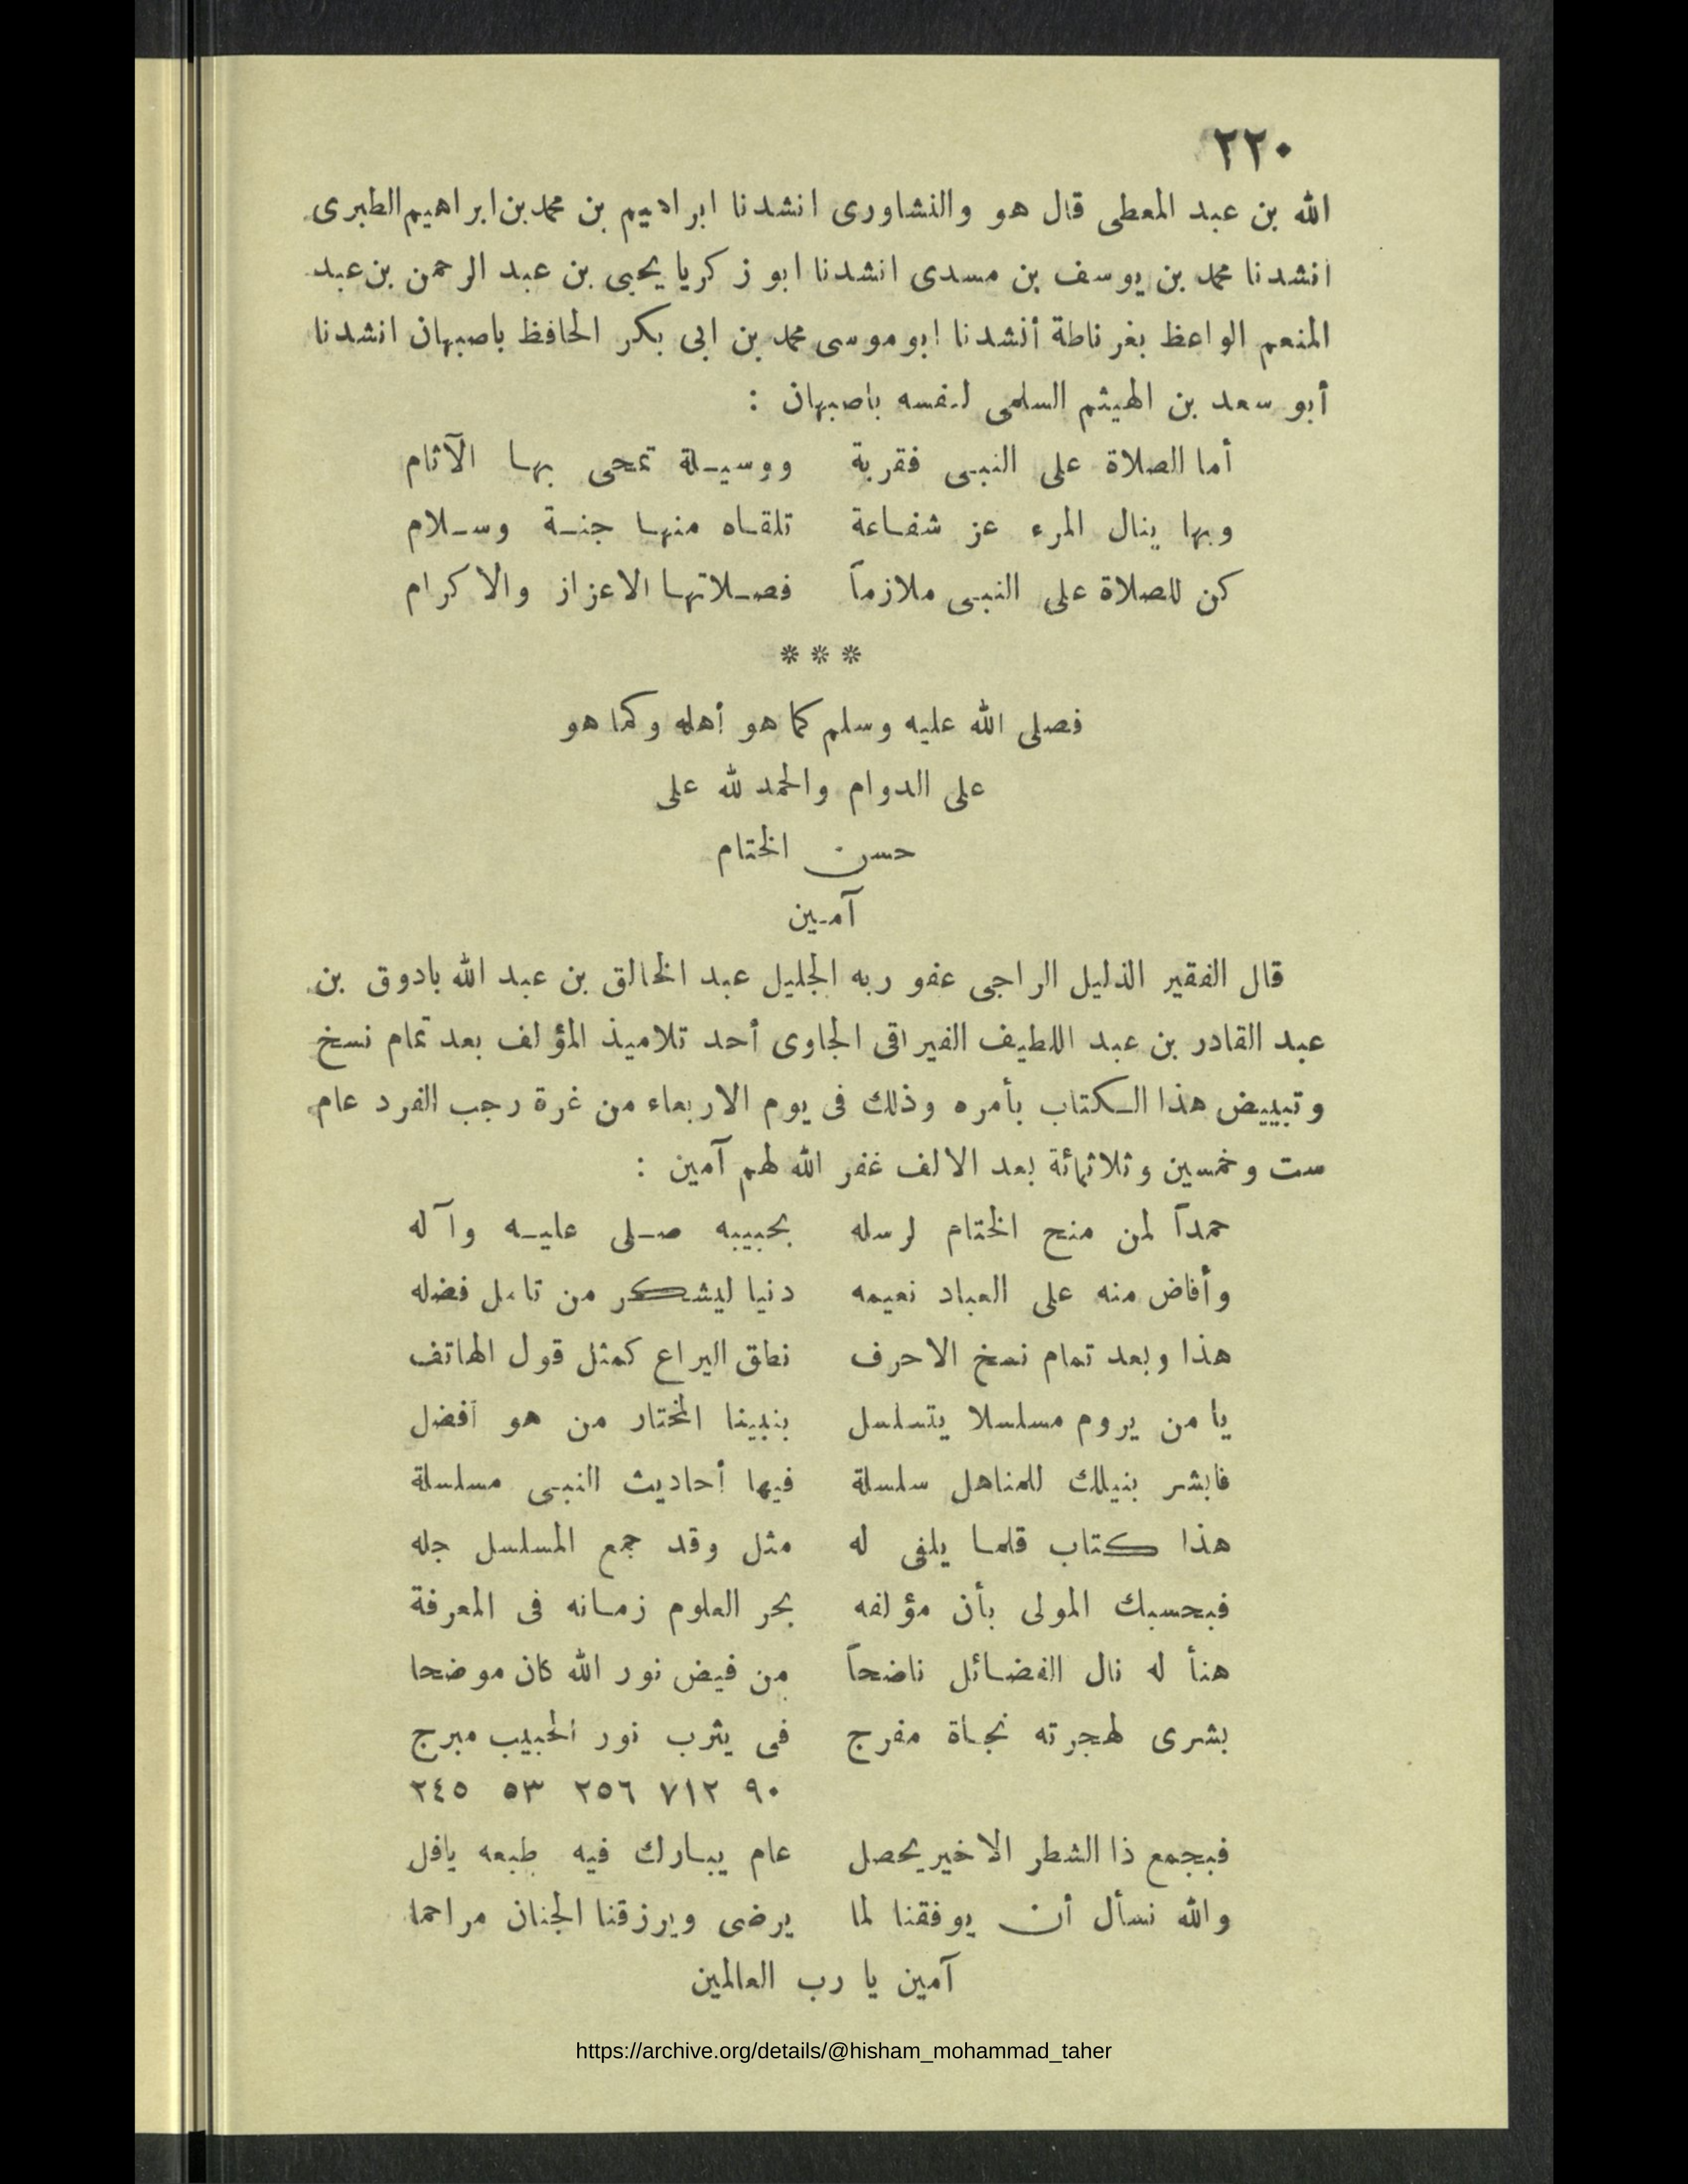 ٢٢٠
الله بن عبد المعطى قال هو والنشاورى انشدنا ابراهيم بن محمد بن ابراهيم الطبرى
انشدنا محمد بن يوسف بن مسدى انشدنا ابو زكريا يحيى بن عبد الرحمن بن عبد
المنعم الواعظ بغرناطة أنشدنا ابو موسى محمد بن ابى بكر الحافظ باصبهان انشدنا
أبو سعد بن الهيثم السلمى لنفسه باصبهان :
أما الصلاة على النبى فقربة ووسيلة تمحى بها الآثام
وبها ينال المرء عز شفاعة تلقاه منها جنة وسلام
كن للصلاة على النبى ملازماً فصلاتها الاعزاز والاكرام
* * *
فصلى الله عليه وسلم كما هو أهله وكما هو
على الدوام والحمد لله على
حسن الختام
آمين
قال الفقير الذليل الراجى عفو ربه الجليل عبد الخالق بن عبد الله بادوق بن
عبد القادر بن عبد اللطيف الفيراقى الجاوى أحد تلاميذ المؤلف بعد تمام نسخ
وتبييض هذا الكتاب بأمره وذلك فى يوم الاربعاء من غرة رجب الفرد عام
ست وخمسين وثلاثمائة بعد الالف غفر الله لهم آمين :
حمداً لمن منح الختام لرسله بحبيبه صلى عليه وآله
وأفاض منه على العباد نعيمه دنيا ليشكر من تامل فضله
هذا وبعد تمام نسخ الاحرف نطق اليراع كمثل قول الهاتف
يا من يروم مسلسلا يتسلسل بنبينا المختار من هو أفضل
فابشر بنيلك للمناهل سلسلة فيها أحاديث النبى مسلسلة
هذا كتاب قلما يلفى له مثل وقد جمع المسلسل جله
فبحسبك المولى بأن مؤلفه بحر العلوم زمانه فى المعرفة
هنأ له نال الفضائل ناضحاً من فيض نور الله كان موضحا
بشرى لهجرته نجاة مفرج فى يثرب نور الحبيب مبرج
٩٠ ٧١٢ ٢٥٦ ٥٣ ٢٤٥
فبجمع ذا الشطر الاخير يحصل عام يبارك فيه طبعه يافل
والله نسأل أن يوفقنا لما يرضى ويرزقنا الجنان مراحما
آمين يا رب العالمين
https://archive.org/details/@hisham_mohammad_taher